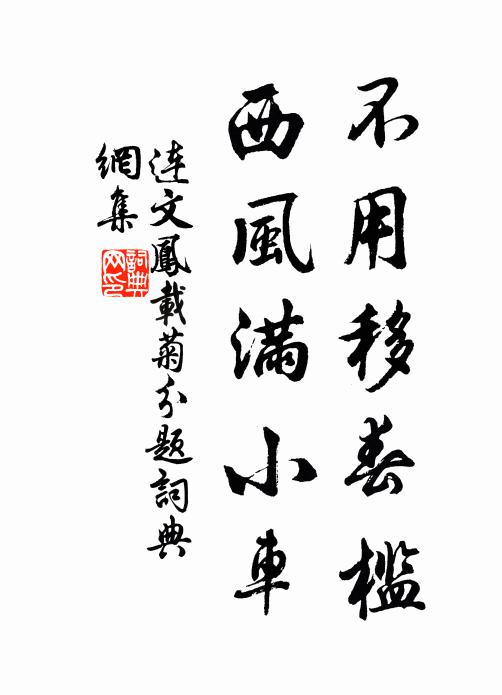 不用移春檻
西風滿小車
連文鳳載菊分題詞典
網集
詞典
网印